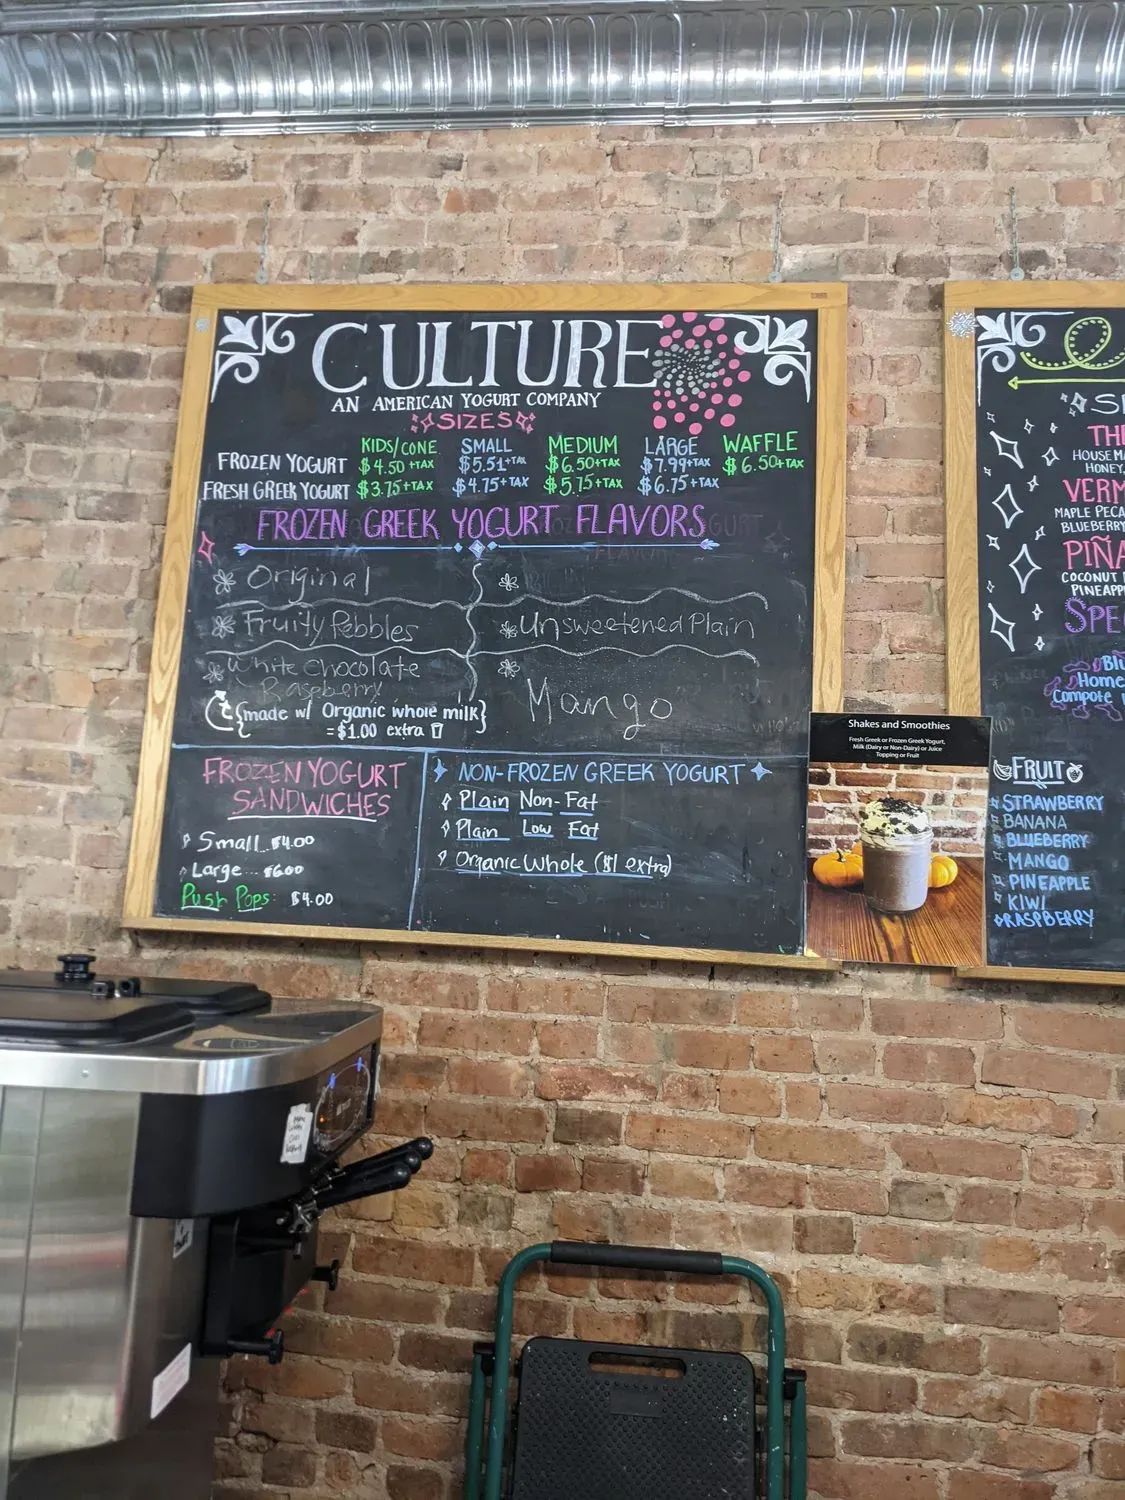 CULTURE
AN AMERICAN YOGURT COMPANY
SIZES
KIDS/CONE SMALL MEDIUM LARGE WAFFLE
FROZEN YOGURT $4.50 +TAX $5.51+TAX $6.50+TAX $7.99+TAX $6.50+TAX
FRESH GREEK YOGURT $3.75+TAX $4.75+TAX $5.75+TAX $6.75+TAX
FROZEN GREEK YOGURT FLAVORS
Original
Fruity Pebbles
Unsweetened Plain
White Chocolate
Raspberry
Mango
{made w/ Organic whole milk}
=$1.00 extra
FROZEN YOGURT
SANDWICHES
Small.. $4.00
Large... $6.00
Push Pops $4.00
NON-FROZEN GREEK YOGURT
Plain Non-Fat
Plain Low Fat
Organic Whole ($1 extra)
Shakes and Smoothies
Fresh Greek or Frozen Greek Yogurt,
Milk (Dairy or Non-Dairy) or Juice
Topping or Fruit
HOUSE
HONEY,
MAPLE
BLUEBERRY
COCONUT
Home
Compote
FRUIT
STRAWBERRY
BANANA
BLUEBERRY
MANGO
PINEAPPLE
KIWI
RASPBERRY